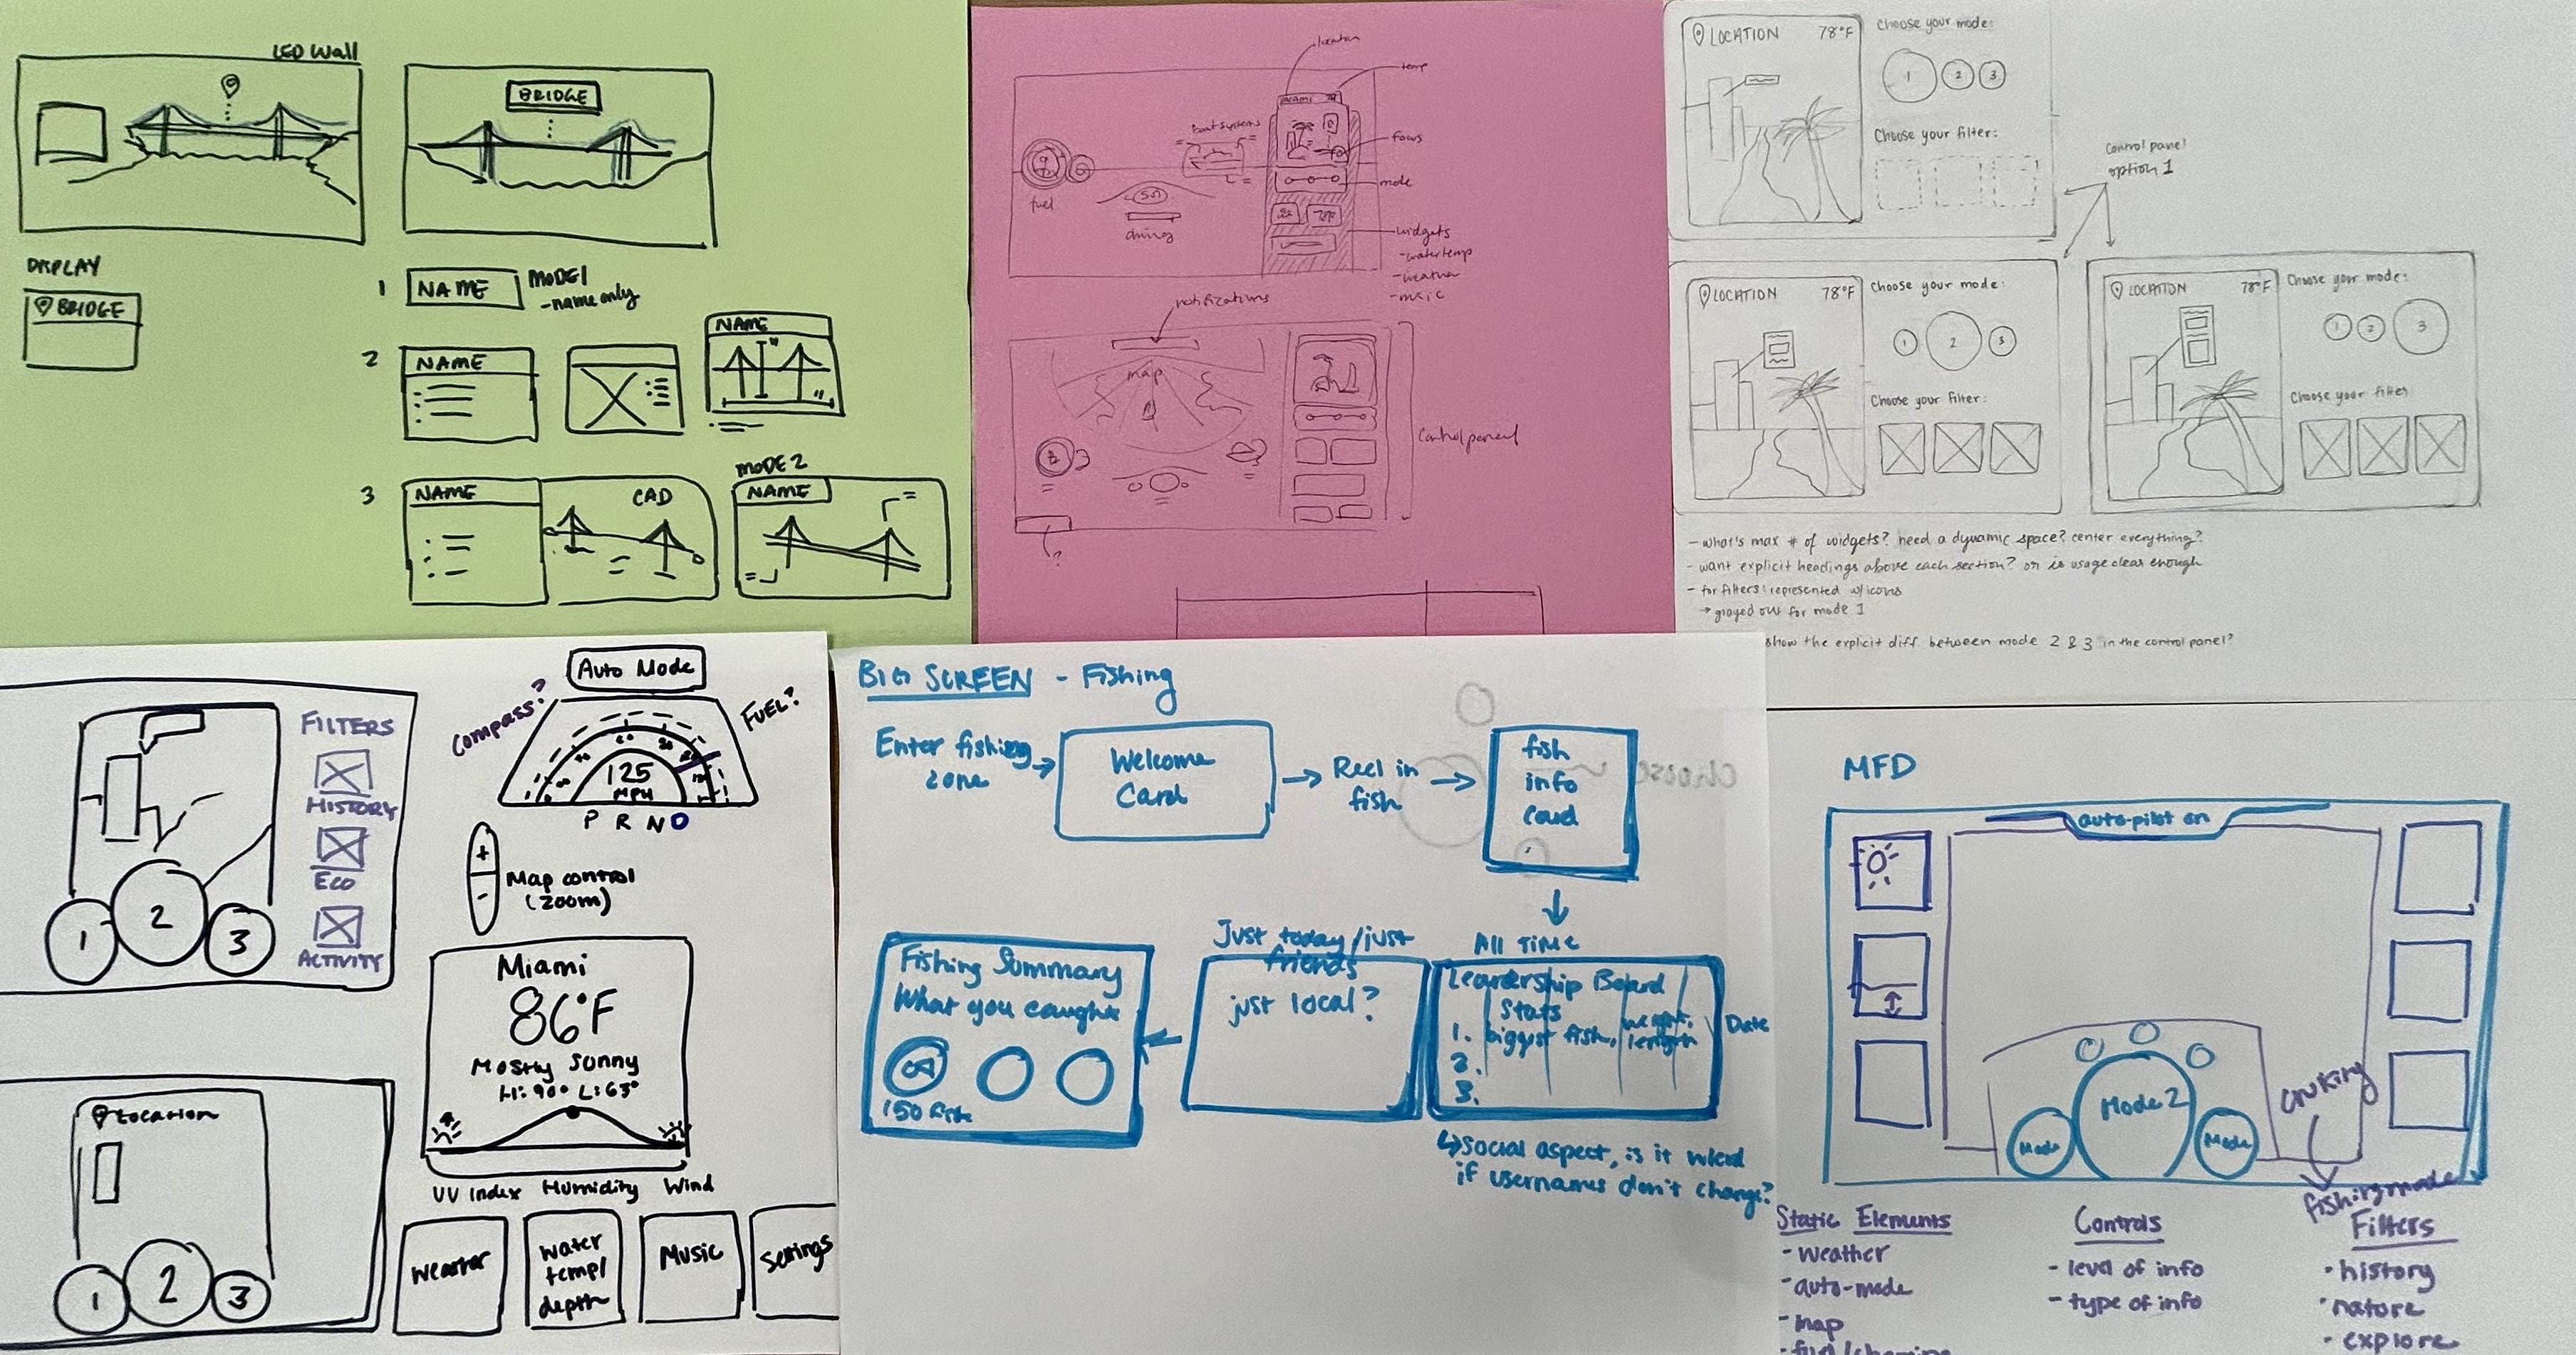 LED Wall
BRIDGE
DISPLAY
BRIDGE
1 NAME MODE 1
- name only
2 NAME
NAME
3 NAME
CAD
MODE 2
NAME
location
temp
miami
Boat systems
focus
mode
fuel
driving
widgets
- water temp
- weather
- music
notifications
map
control panel
?
LOCATION 78°F
Choose your mode:
1 2 3
Choose your filter:
Control panel
option 1
LOCATION 78°F
Choose your mode:
1 2 3
Choose your filter:
LOCATION 78°F
Choose your mode:
1 2 3
Choose your filter
- what's max # of widgets? need a dynamic space? center everything?
- want explicit headings above each section? or is usage clear enough
- for filters: represented w/icons
→ grayed out for mode 1
show the explicit diff. between mode 2 & 3 in the control panel?
FILTERS
HISTORY
ECO
ACTIVITY
1 2 3
Auto Mode
Compass?
FUEL?
125
MPH
P R N D
+
-
Map control
(zoom)
Miami
86°F
Mostly Sunny
H: 90° L: 63°
UV Index Humidity Wind
Location
1 2 3
Weater
water
temp/
depth
Music
Settings
BIG SCREEN - Fishing
Enter fishing
zone
Welcome
Card
Reel in
fish
fish
info
card
All Time
Leadership Board
Stats
1. biggest fish, weight,
length
2.
3.
Date
↳ social aspect, is it weird
if usernames don't change?
Just today/just
friends
just local?
Fishing Summary
What you caught
150 fish
MFD
auto-pilot on
Mode 2
Mode
Mode
cruking
fishing mode
Static Elements
- weather
- auto-mode
- map
- fuel/charging
Controls
- level of info
- type of info
Filters
- history
- nature
- explore